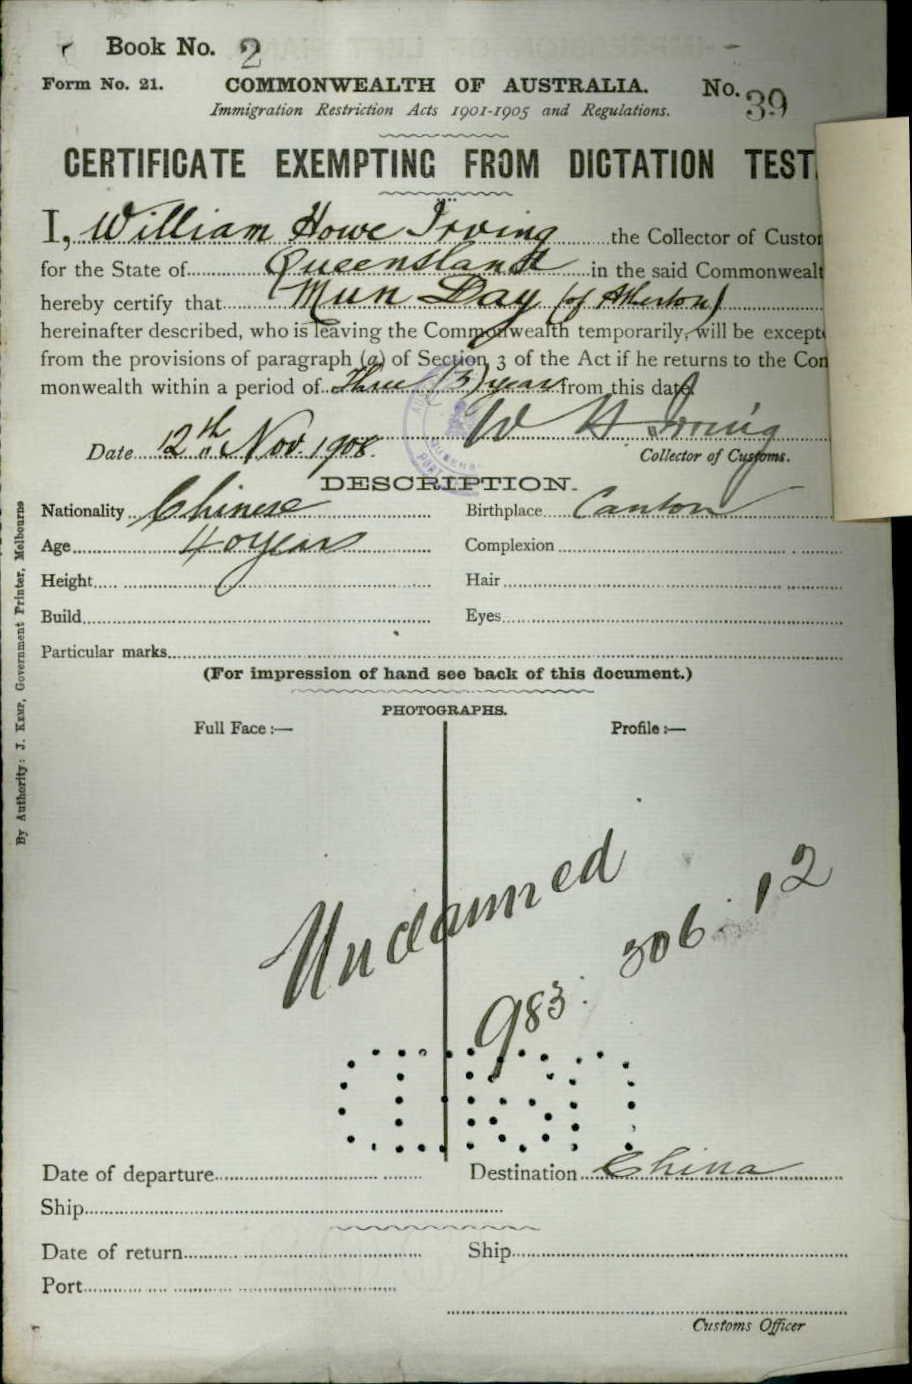 Book No. 2
Form No. 21. COMMONWEALTH OF AUSTRALIA. No. 39
Immigration Restriction Acts 1901-1905 and Regulations.
CERTIFICATE EXEMPTING FROM DICTATION TEST.
I, William Howe Irving the Collector of Custo
for the State of Queensland in the said Commonwealt
hereby certify that Mun Day (of Atherton)
hereinafter described, who is leaving the Commonwealth temporarily, will be except
from the provisions of paragraph (a) of Section 3 of the Act if he returns to the Com
monwealth within a period of Three (3) years from this date
W H Irving
Date 12th Nov. 1908. Collector of Customs.
DESCRIPTION.
Nationality Chinese Birthplace Canton
Age 40 years Complexion
Height Hair
Build Eyes
Particular marks
(For impression of hand see back of this document.)
PHOTOGRAPHS.
Full Face :— Profile :—
By Authority: J. Kemp, Government Printer, Melbourne
Unclaimed
983. 306. 12
Date of departure Destination China
Ship
Date of return Ship
Port
Customs Officer